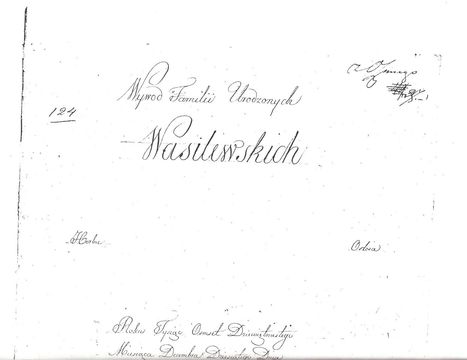 124
Wywod Familii Urodzonych
Wasilewskich
Herbu
Roku Tysiąc Osmset Dziewiętnastego
Miesiąca Decembra Dziesiątego Dnia